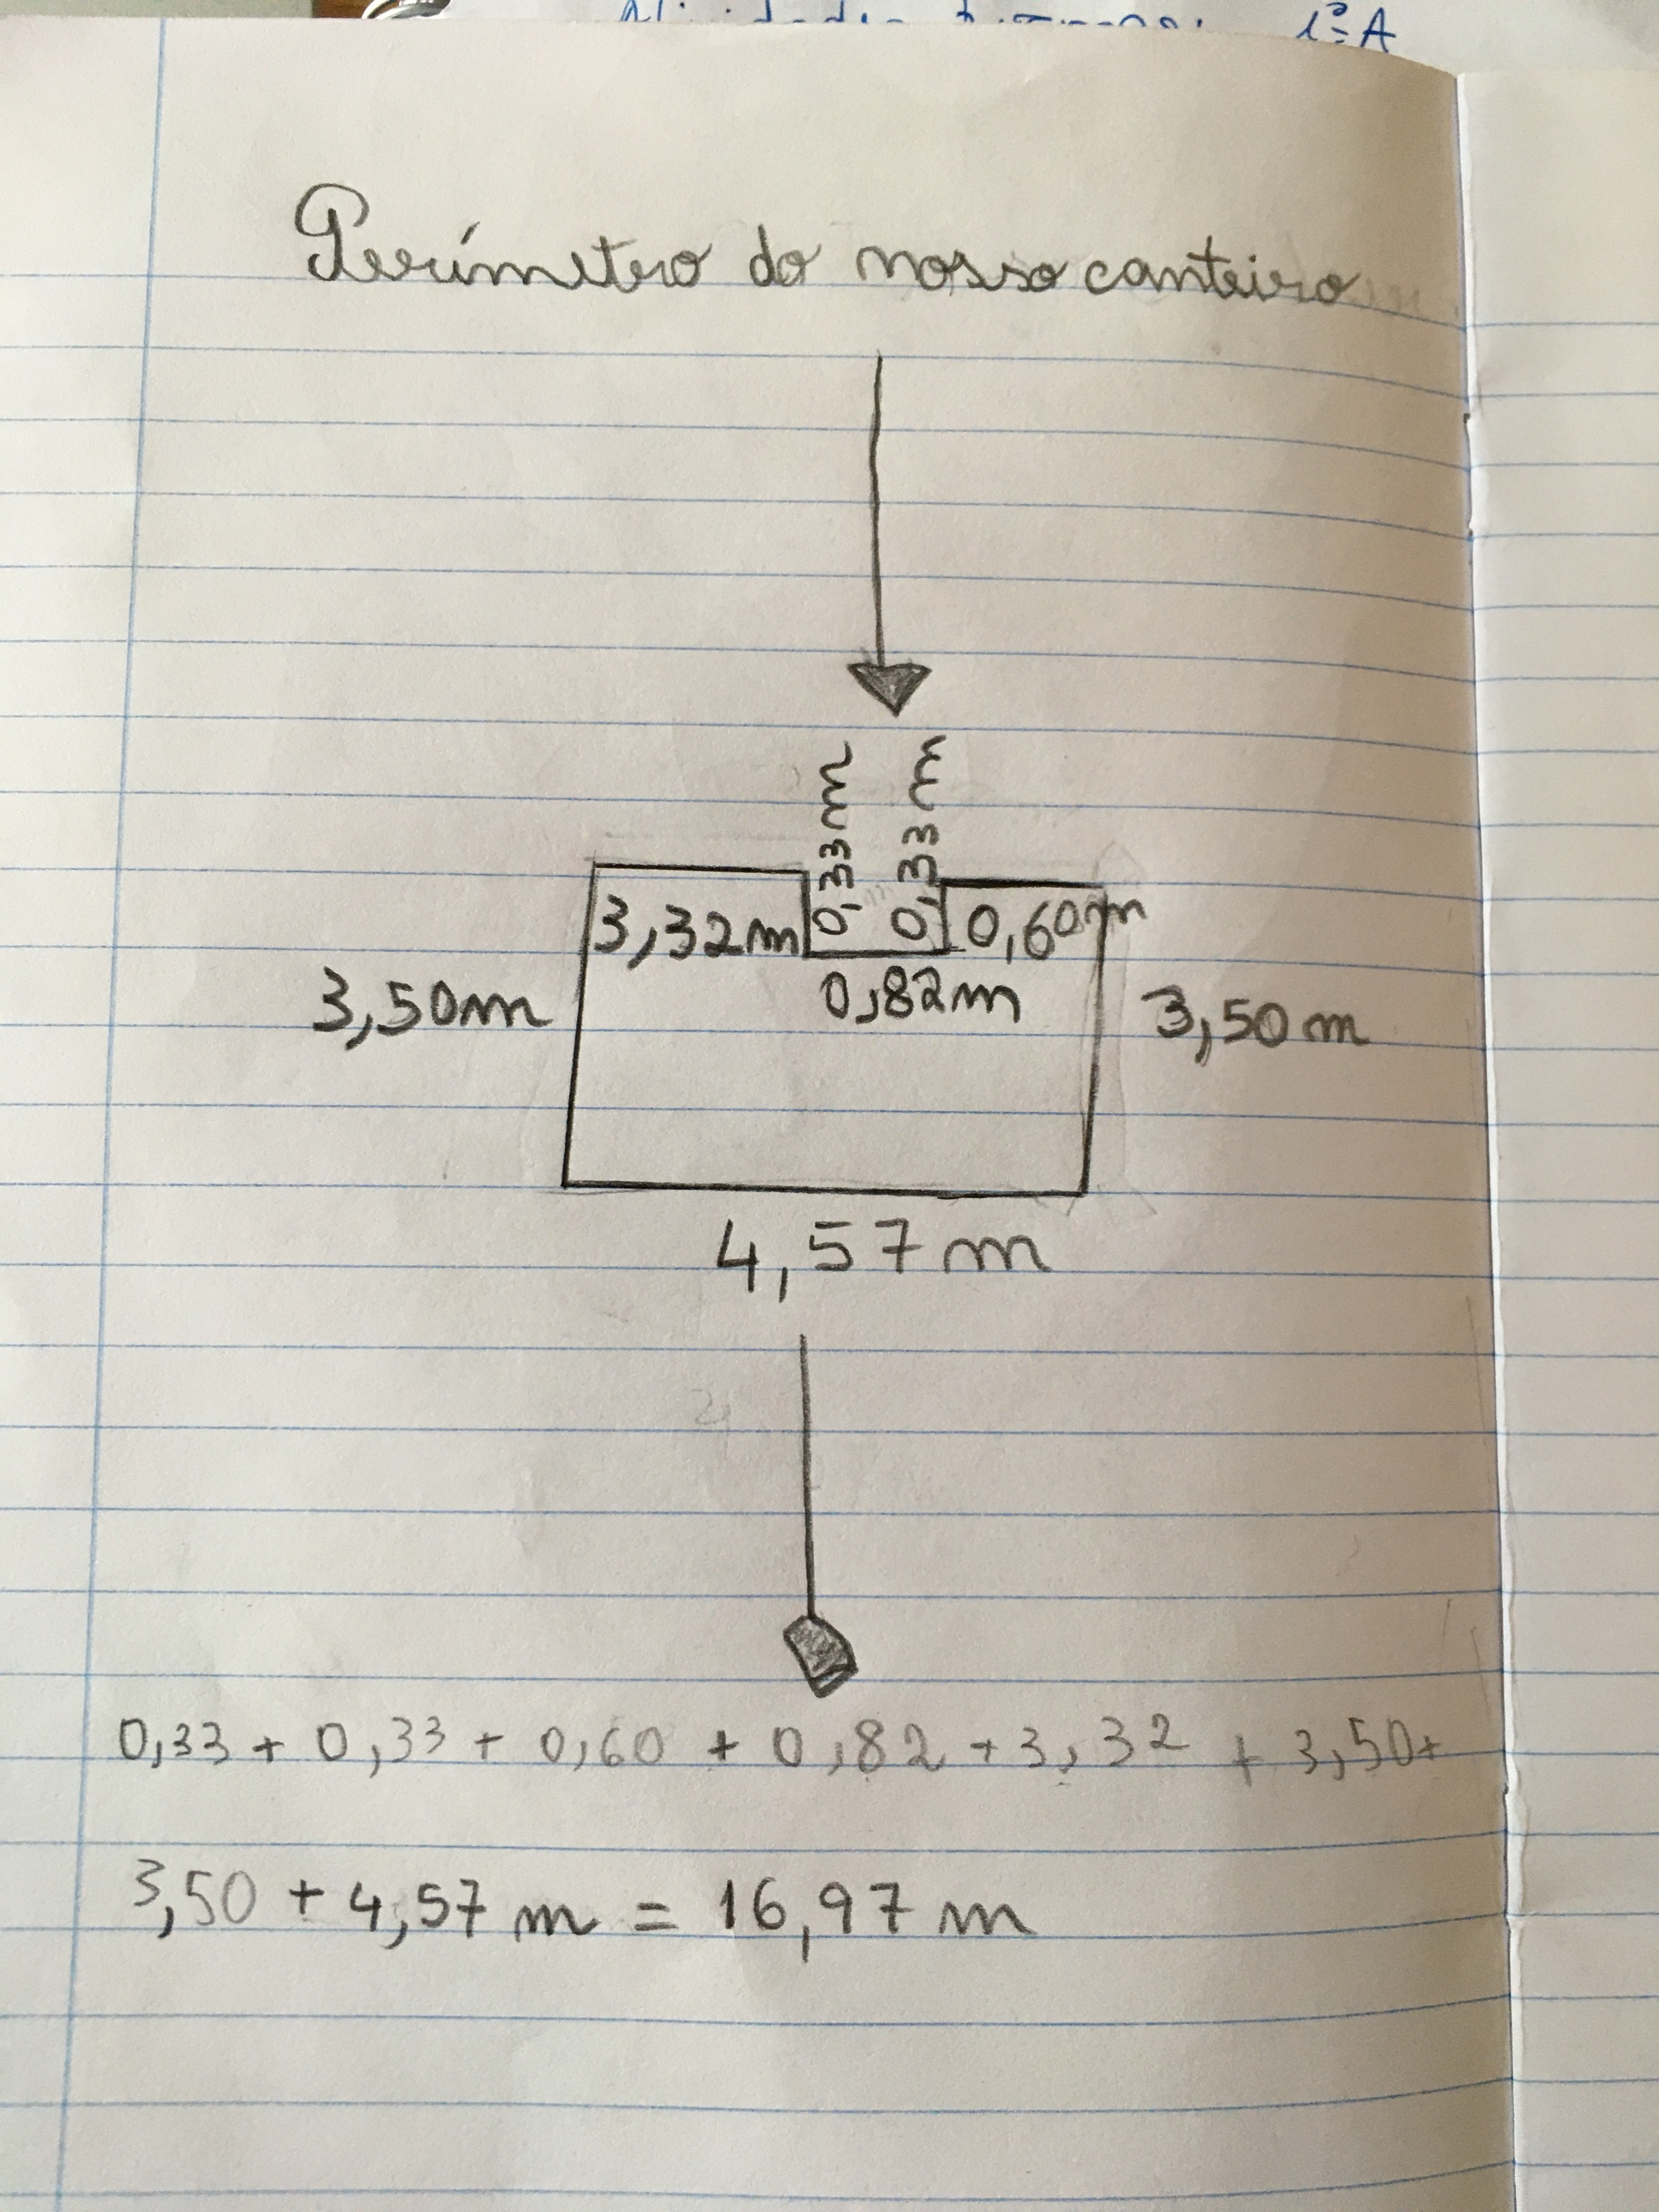 1º A
Perímetro do nosso canteiro
0,33m
0,33m
3,32m
0,60m
0,82m
3,50m
3,50m
4,57m
0,33 + 0,33 + 0,60 + 0,82 + 3,32 + 3,50+
3,50 + 4,57 m = 16,97 m